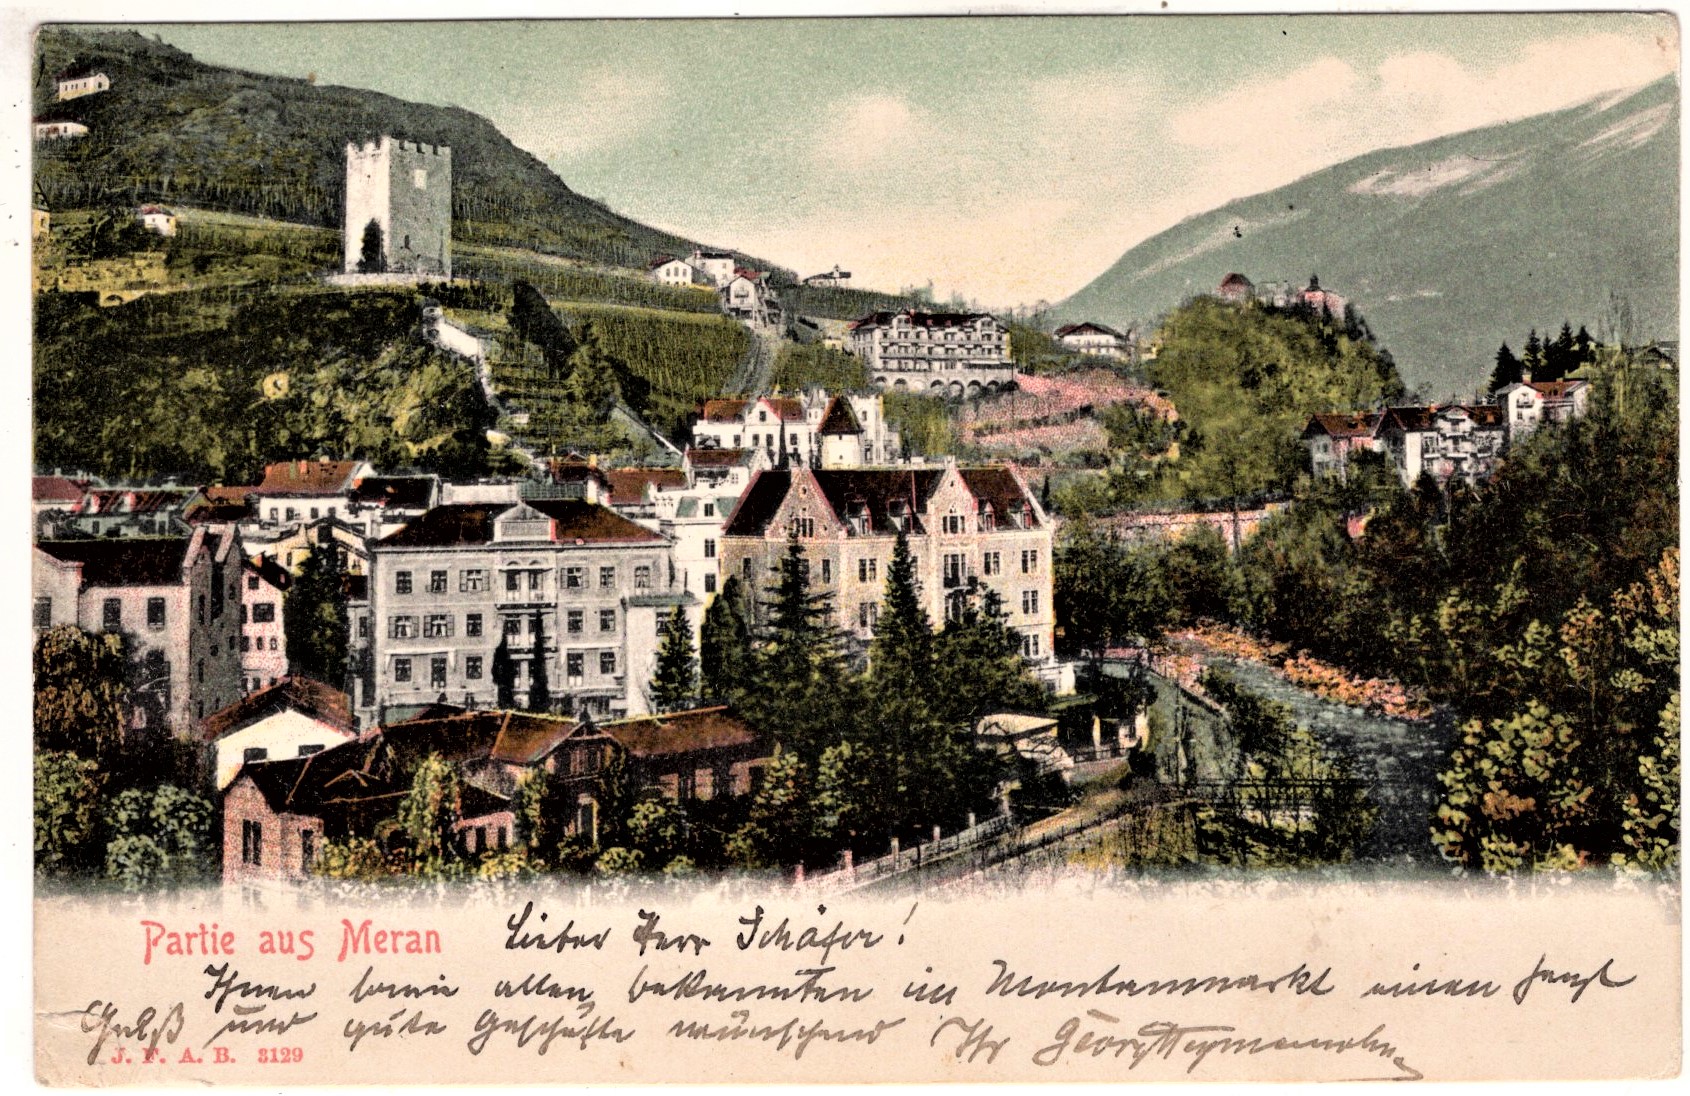 Partie aus Meran
Lieber Herr Schäfer!
Ihnen sowie allen bekannten im einen
und gute Geschäfte wünschend Ihr Georg
J. F. A. B. 3129